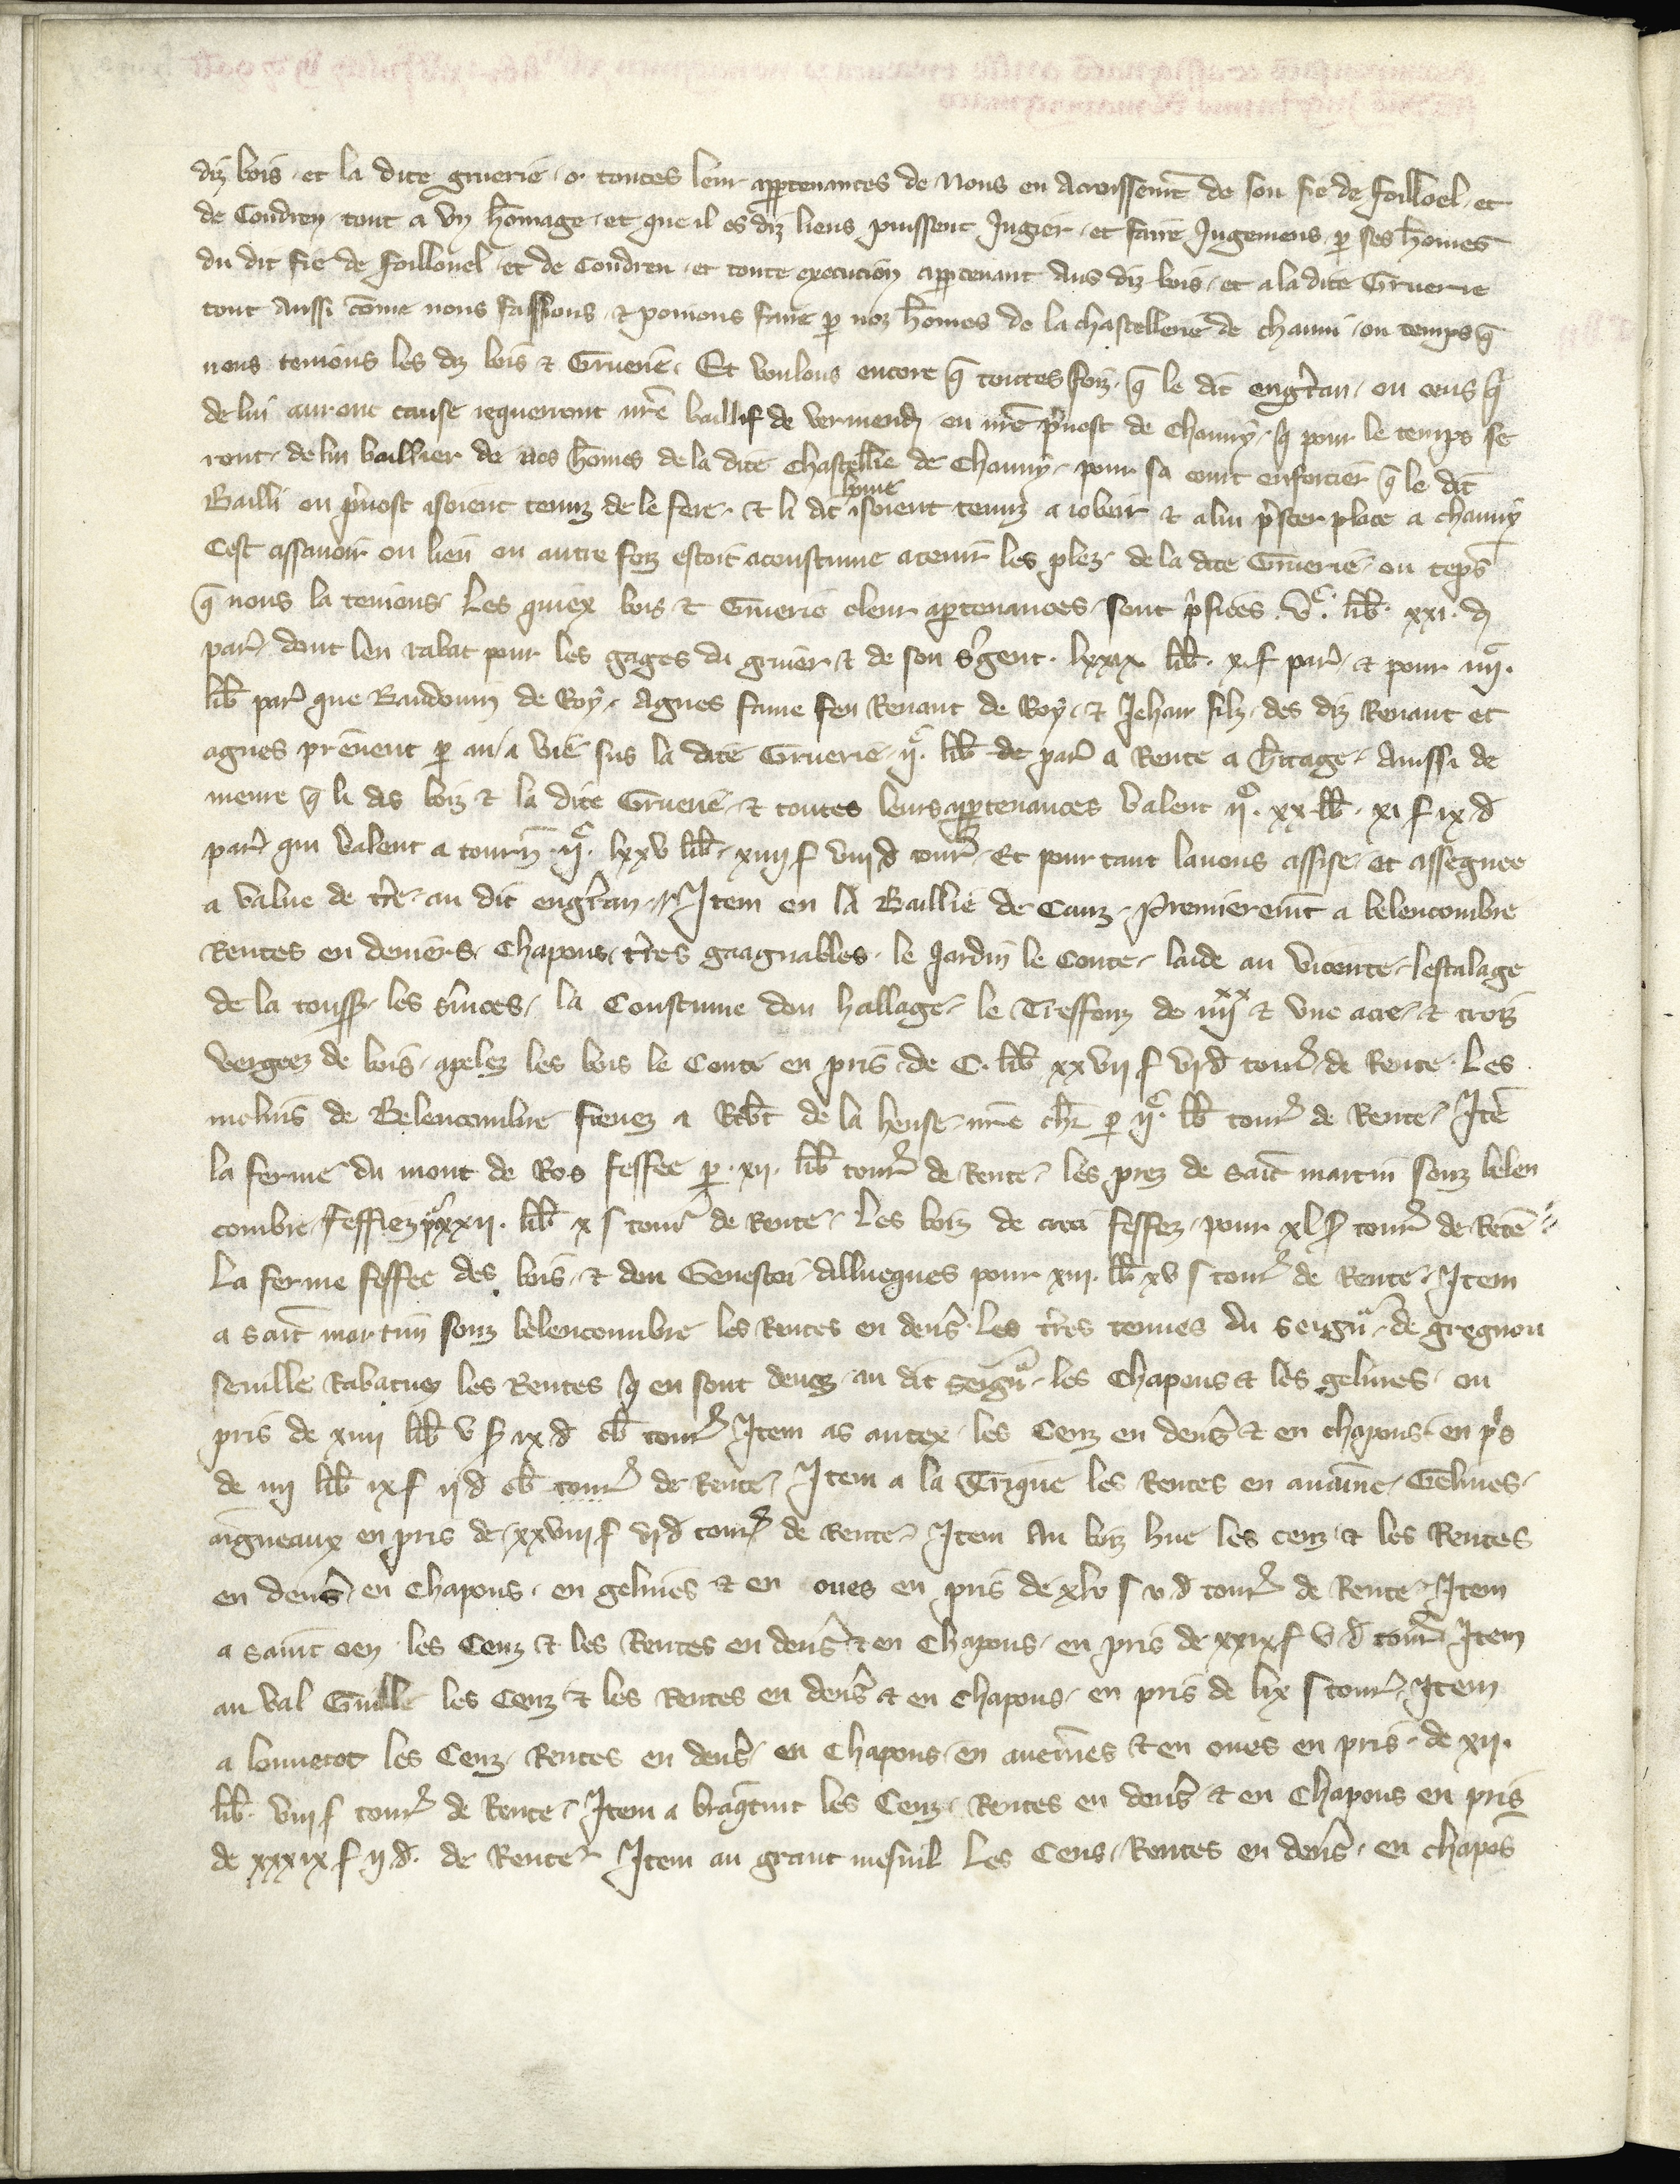 diz bois et la dite gruerie o toutes leur appartenances de nous en acroissemt de son fie de foilloel et
de Condren tout a vn homage et que il es diz lieus puissent Jugier et faire Jugemens p ses homes
du dit fie de foillouel et de Condren et toute execucion appartenant aus diz bois et a la dite Gruerie
tout aussi come nous faissions & poiuons faire p noz homes de la chastellerie de chauni ou temps q̄
nous tenions les diz bois & Gruerie Et voulons encore q̄ toutes foiz q̄ le dit engr̄ran ou ceus q̄
de lui auront cause requerront nr̄e baillif de vermend en nr̄e p̄uost de Chauny q̄ pour le temps se
ront de lui baillier de nos homes de la dite Chastellie de Chauny pour sa court enforcier q̄ le dit
home
Bailli ou p̄uost isoient tenuz de le fere & li dit isoient tenuz a iobeir & a lui p̄ster place a chauny
Cest assauoir ou lieu ou autre foiz estoit acoustume a tenir les plez de la dite Gruerie ou teps
q̄ nous la tenions Les quiex bois & Gruerie o leur apartenances sont p̄sices vc lib xxi d
par dont len rabat pour les gages du gruier & de son s̄gent lxxix lib x s par & pour iiii
lib par que Baudouin de Roy Agnes fame feu Renaut de Roy & Jehan filz des diz Renaut et
agnes prenent p an a vie sus la dite Gruerie iic lib de par a Rente a h̄itage Aussi de
meure q̄ li dis boiz & la dite Gruerie & toutes leurs appartenances valent iic xx lib xi s ix d
par qui valent a tourn iic lxxv lib xiiii s viii d tour Et pour tant lauons assise et assegnee
a value de tr̄e au dit engr̄ran Item en la Baillie de Cauz Premieremt a belencombre
Rentes en deniers Chapons tr̄res gaagnables le Jardin le Conte laide au viconte lestalage
de la tousp les s̄uices la Coustume dou hallage le Treffonz de iiiixx & vne acre & troiz
vergees de bois apelez les bois le Conte en pris de C lib xxvii s vi d tour de Rente Les
molins de Belencombre fieuez a Rob̄t de la heuse nr̄e chr̄ p iic lib tour de Rente Itē
la ferme du mont de Ros feffee p xii lib tour de Rente les prez de sait martin souz belen
combre feffiez p xxii lib x s tour de Rente Les boiz de croi feffez pour xl s tour de Rēte
La ferme feffee des bois & dou Genestoi dilluegues pour xiii lib xv s tour de Rente Item
a sait martin souz belencombre les Rentes en den̄s Les tr̄res tenues du seign̄ de gregnou
seuille Rabatuez les Rentes q̄ en sont deuez au dit seign̄ les Chapons & les gelines ou
pris de xiiii lib v s ix d ob tour Item as autex les Cenz en den̄s & en chapons en p̄s
de iiii lib ix s ii d ob tour de Rente Item a la Trique les Rentes en auaine Gelines
aigneaux en pris de xxviii s vi d tour de Rente Item Au boiz hue les cenz & les Rentes
en den̄s en Chapons en gelines & en oues en pris de xlv s v d tour de Rente Item
a saint oen les Cenz & les Rentes en den̄s & en Chapons en pris de xxix s v d tour Item
au val Guille les Cenz & les Rentes en den̄s & en chapons en pris de lix s tour Item
a louuetot les Cenz Rentes en den̄s en Chapons en auenes & en oues en pris de xii
lib viii s tour de Rente Item a braq̄tuit les Cenz Rentes en den̄s & en Chapons en pris
de xxxix s ii d de Rente Item au grant mesnil Les Cens Rentes en den̄s en chapōs